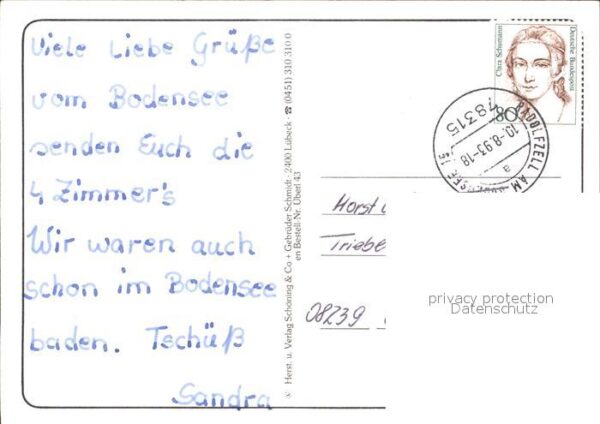 Viele Liebe Grüße
vom Bodensee
senden Euch die
4 Zimmer's
Wir waren auch
schon im Bodensee
baden. Tschüß
Sandra
Herst. u. Verlag Schöning & Co + Gebrüder Schmidt · 2400 Lübeck · ☎ (0451) 310 310 0
en Bestell-Nr. Überl 43
Clara Schumann
Deutsche Bundespost
80
RADOLFZELL AM
78315
10.-8.93-18
a
Horst
Triebe
08239
privacy protection
Datenschutz